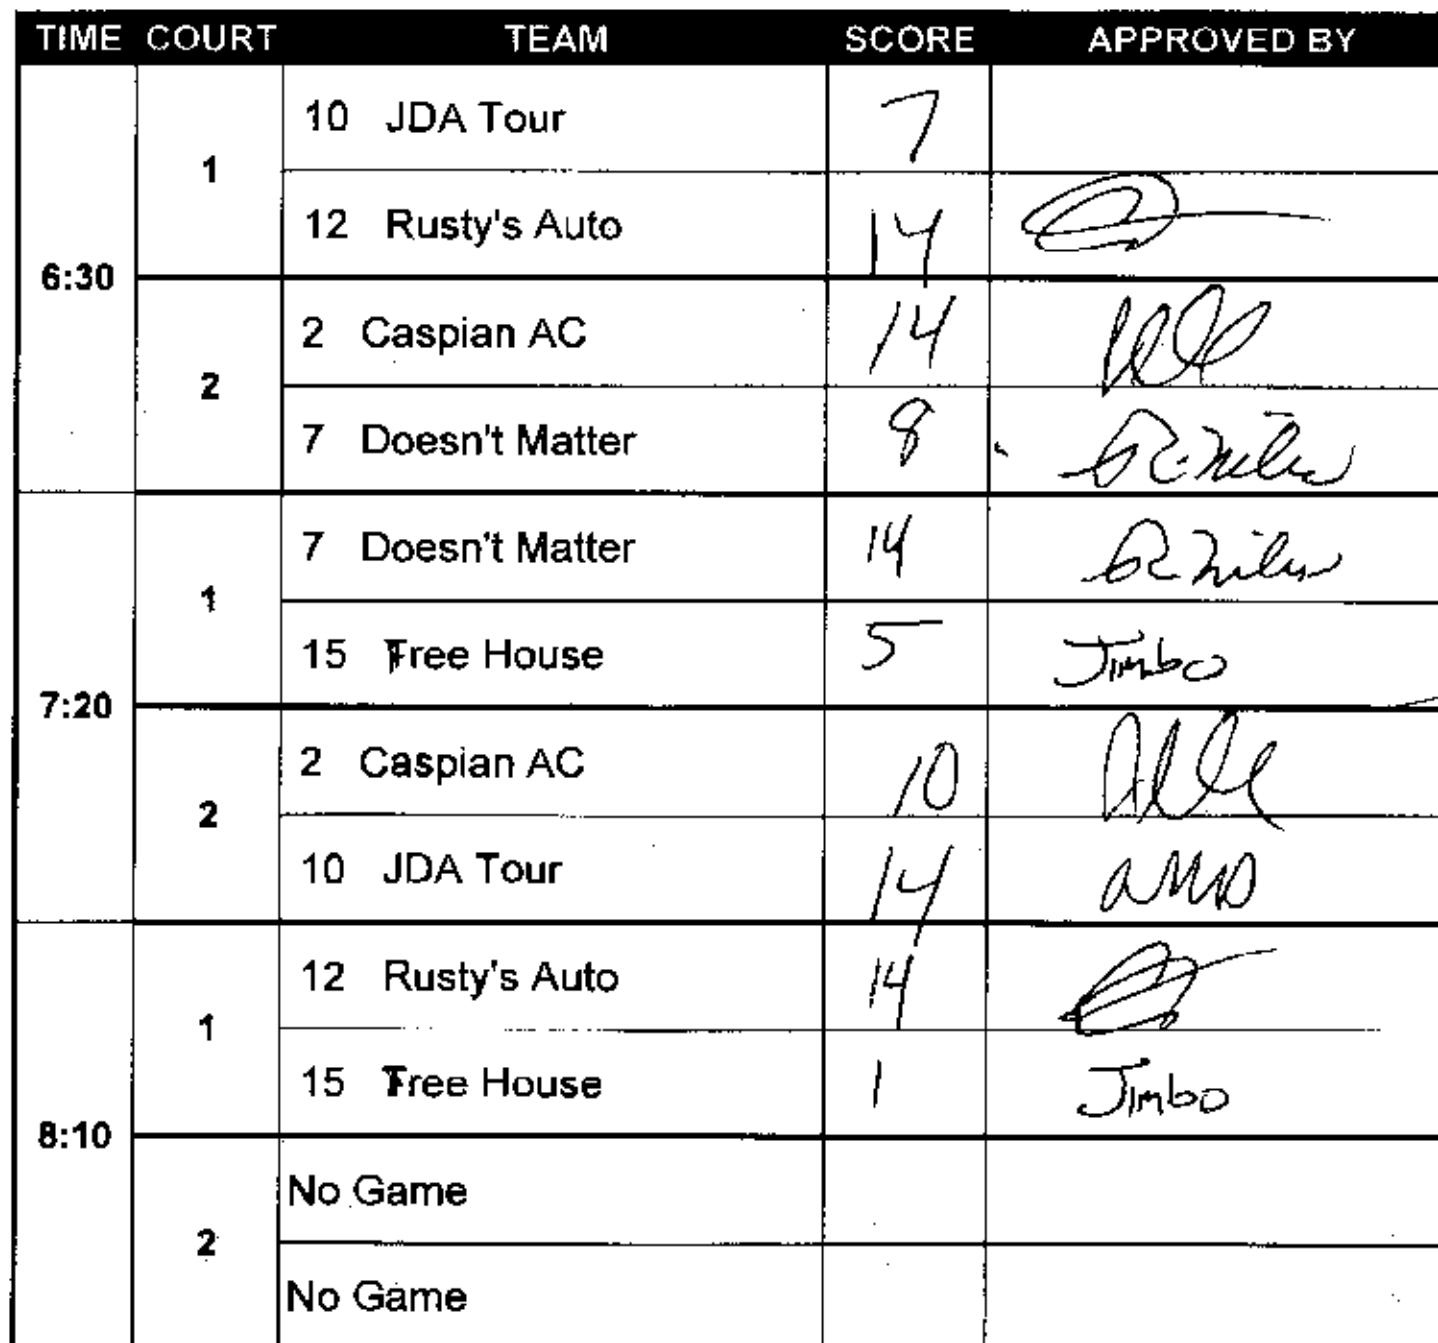 TIME COURT TEAM SCORE APPROVED BY
6:30
1
10 JDA Tour 7
12 Rusty's Auto 14
2
2 Caspian AC 14
7 Doesn't Matter 8
7:20
1
7 Doesn't Matter 14
15 Tree House 5 Jimbo
2
2 Caspian AC 10
10 JDA Tour 14
8:10
1
12 Rusty's Auto 14
15 Tree House 1 Jimbo
2
No Game
No Game